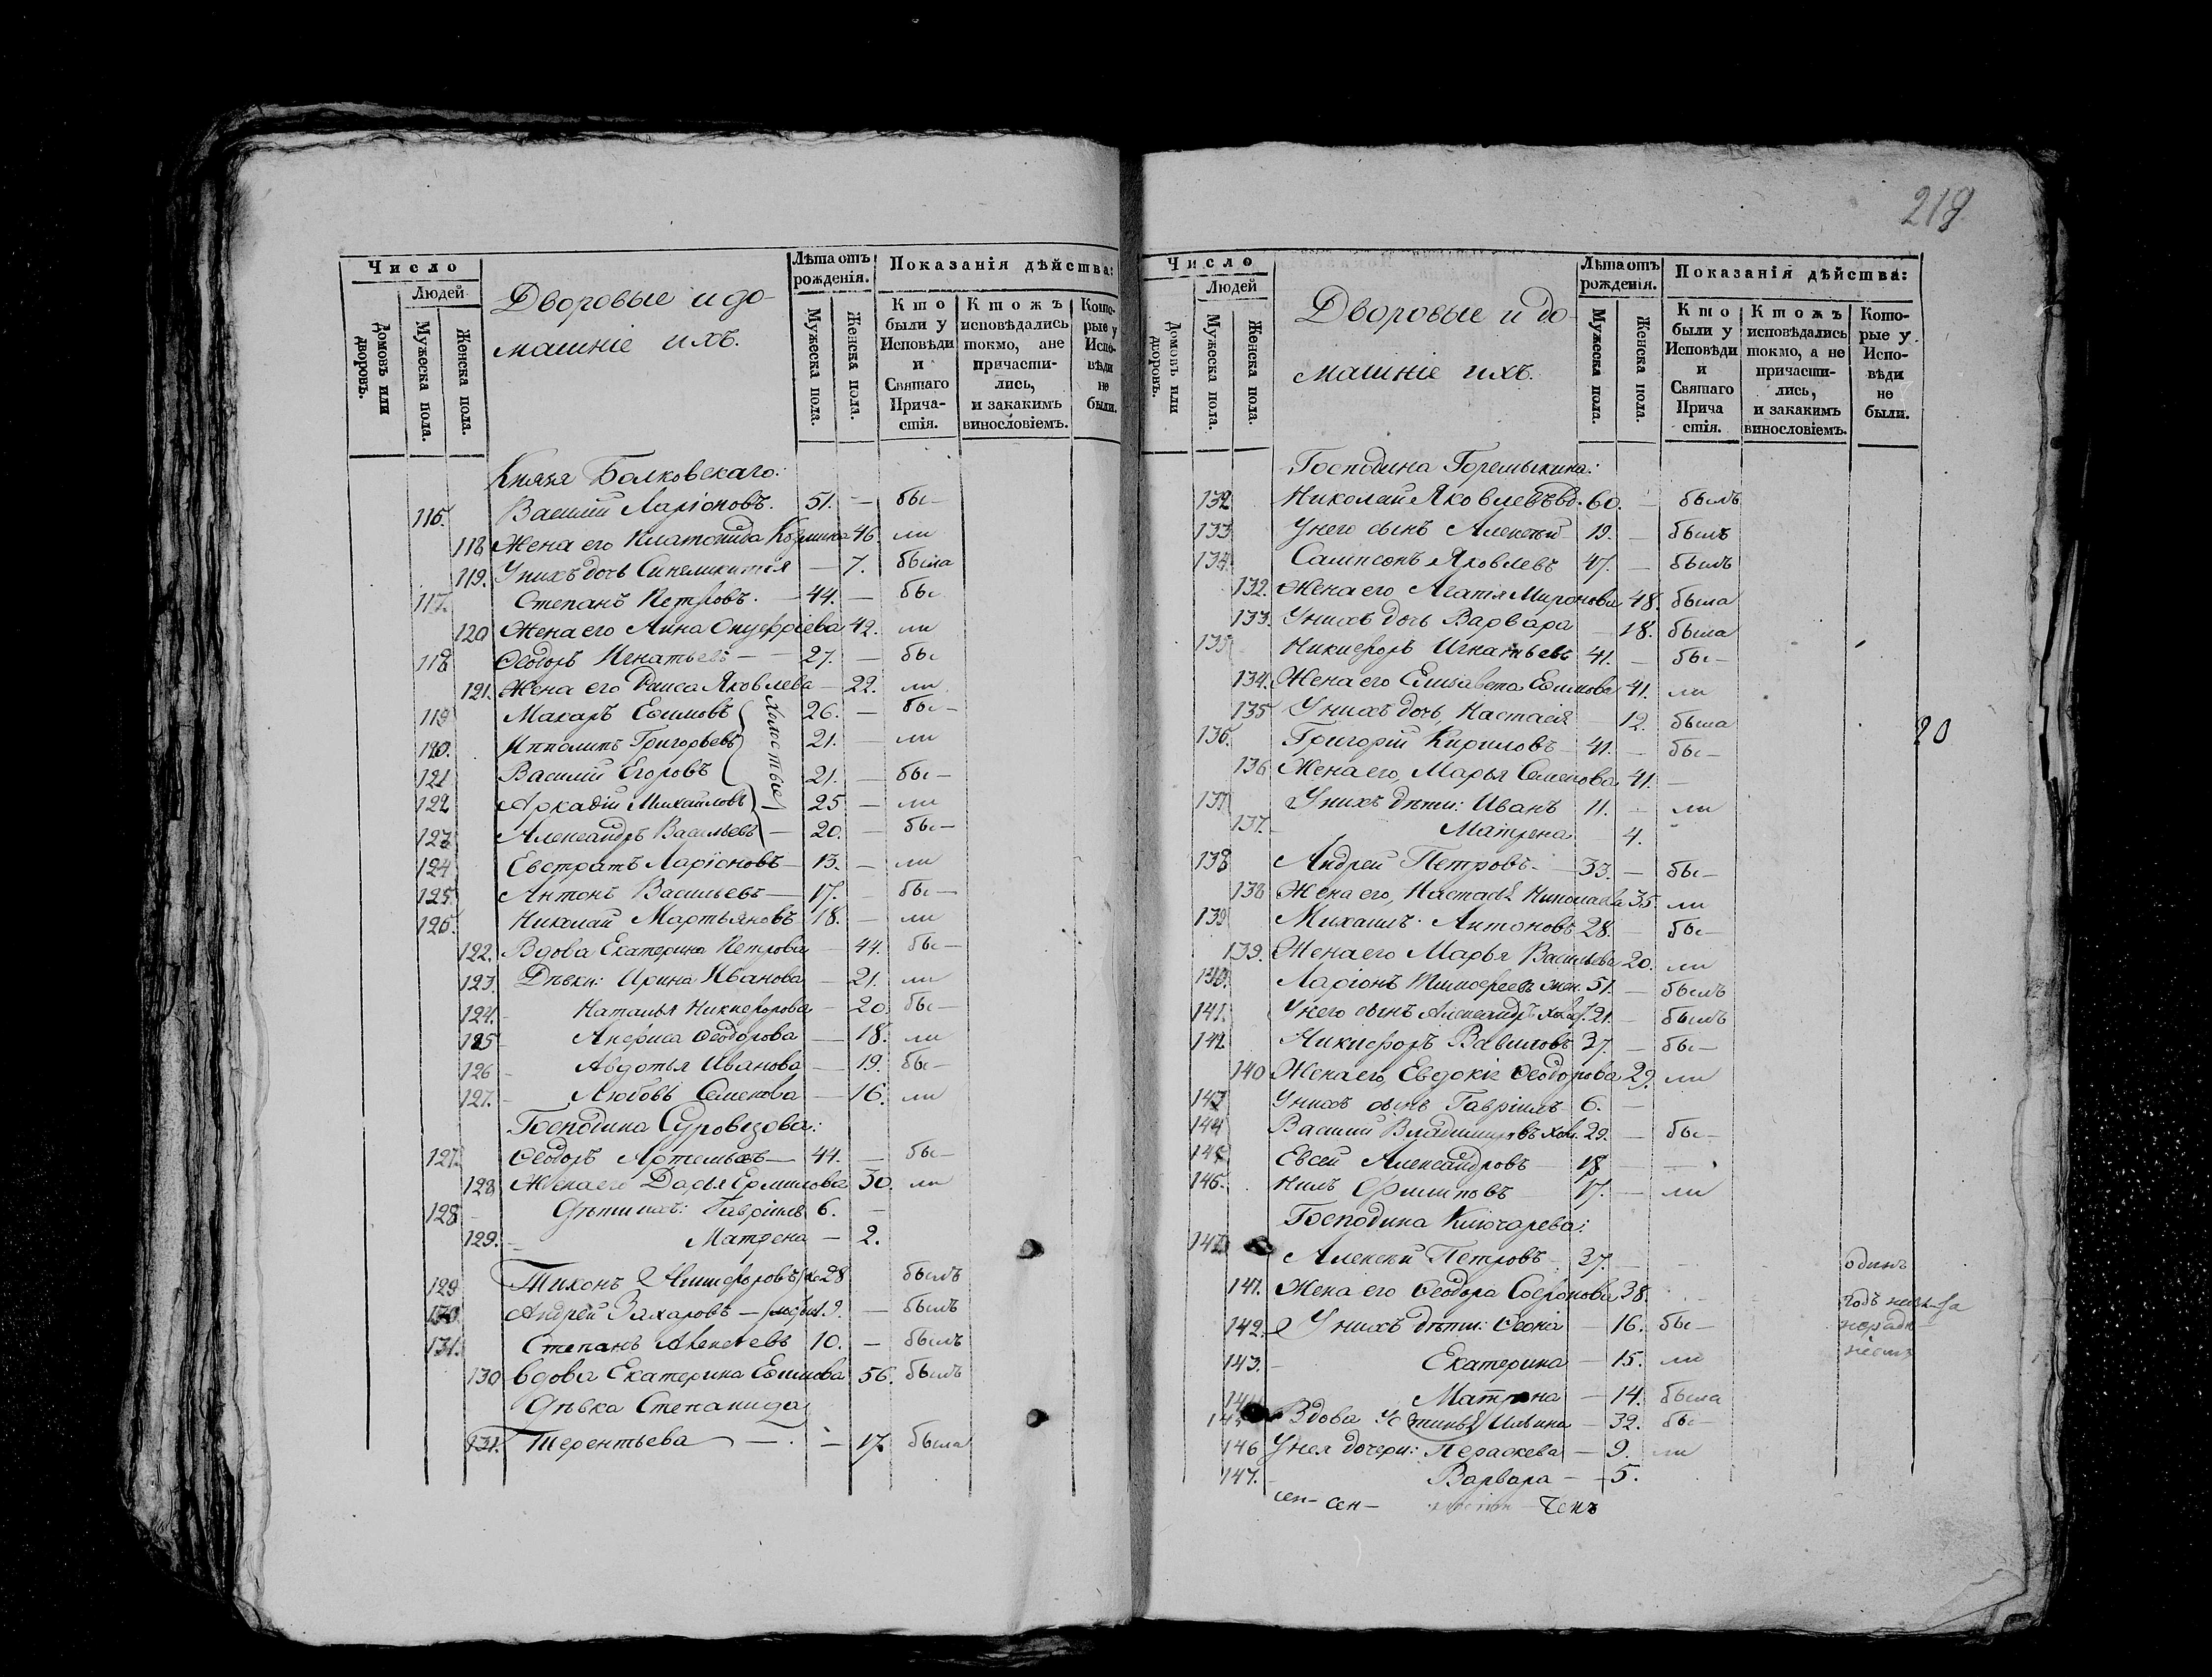 Число
Людей
Домовъ или дворовъ.
Мужеска пола.
Женска пола.
Дворовые и до-
машніе ихъ.
Лѣта отъ рожденія.
Мужеска пола.
Женска пола.
Показанія дѣйства:
Кто были у Исповѣди и Святаго Прича-стія.
Ктожъ исповѣдались токмо, ане причасти-лись, и закакимъ винословіемъ.
Кото-рые у Испо-вѣди не были.
Князя Болковскаго:
116. Василій Ларіоновъ. 51. — бы-
118 Жена его Платонида 46. ли
119. У нихъ дочь — 7. была
117. Степанъ Петровъ. 44. — бы
120 Жена его Анна Онуфріева 42. ли
118 Ѳеодоръ Игнатьевъ — 27. — бы
121. Жена его Раиса Яковлева — 22. ли
119 Макаръ Ефимовъ 26. — бы-
Холостые
120. Ипполитъ Григорьевъ 21. — ли
121 Василій Егоровъ 21. — бы-
122 Аркадій Михайловъ 25 — ли
123 Александръ Васильевъ — 20. — бы-
124 Евстратъ Ларіоновъ 13. — ли
125. Антонъ Васильевъ — 17. бы-
126. Николай Мартьяновъ 18. — ли
122. Вдова Екатерина Петрова — 44. бы-
123. Дѣвки: Ирина Иванова — 21. ли
124. Наталья Никифорова — 20. бы-
125 Анфиса Ѳеодорова — 18. ли
126 Авдотья Иванова — 19. бы-
127. Любовь Семенова — 16. ли
Господина
127. Ѳеодоръ Артемьевъ — 44. — бы-
128 Жена его Дарья Ермилова 30. ли
128 Дѣти ихъ: Гавріилъ 6. —
129. Матрена — 2.
129 Тихонъ Никифоровъ 28 былъ
130 Андрей Захаровъ — былъ
131. Степанъ Алексѣевъ 10. — былъ
130 вдова Екатерина Ефимова 56. былъ
Дѣвка Степанида
131. Терентьева — — 17 была
219
Число
Людей
Домовъ или дворовъ.
Мужеска пола.
Женска пола.
Дворовые и до-
машніе ихъ.
Лѣта отъ рожденія.
Мужеска пола.
Женска пола.
Показанія дѣйства:
Кто были у Исповѣди и Святаго Прича стія.
Ктожъ исповѣдались токмо, а не причасти-лись, и закакимъ винословіемъ.
Кото-рые у Испо-вѣди не были.
Господина Горемыкина:
132 Николай Яковлевъ вд. 60. — былъ
133 У него сынъ Алексѣй 19. — былъ
134 Сампсонъ Яковлевъ 47. — былъ
132. Жена его Агатія Миронова 48. была
133. У нихъ дочь Варвара — 18. была
135 Никифоръ Игнатьевъ 41. — бы-
134. Жена его Елисавета Ефимова 41. ли
135 У нихъ дочь, Настасія — 12. была
20
136. Григорій Кириловъ 41. — бы-
136 Жена его, Марья Семенова 41. —
137 У нихъ дѣти: Иванъ 11. — ли
137. Матрена 4.
138 Андрей Петровъ. 33. — бы-
138 Жена его, Настасья 35. ли
139 Михаилъ Антоновъ 28. — бы-
139. Жена его Марья Васильева 20. ли
140. Ларіонъ Тимофеевъ 51. — былъ
141. У него сынъ Александръ 21. — былъ
142 Никифоръ Вавиловъ 37. — бы-
140 Жена его, Евдокія Ѳеодорова 29. ли
143 У нихъ сынъ Гавріилъ 6. —
144 Василій Владимировъ хол. 29. — бы-
145 Евсей Александровъ 18 — —
146. Нилъ Филиповъ 17. — ли
Господина Ключарева:
Алексѣй Петровъ 37. — одинъ
141. Жена его Ѳеодора Софронова 38.
142. У нихъ дѣти: — 16. бы-
143. Екатерина — 15. ли
144 Матрона — 14. была
Вдова Устинья Ильина — 32. бы-
146 У нея дочери: Параскева — 9. ли
147. Варвара — 5.
сен- сен- — ченъ